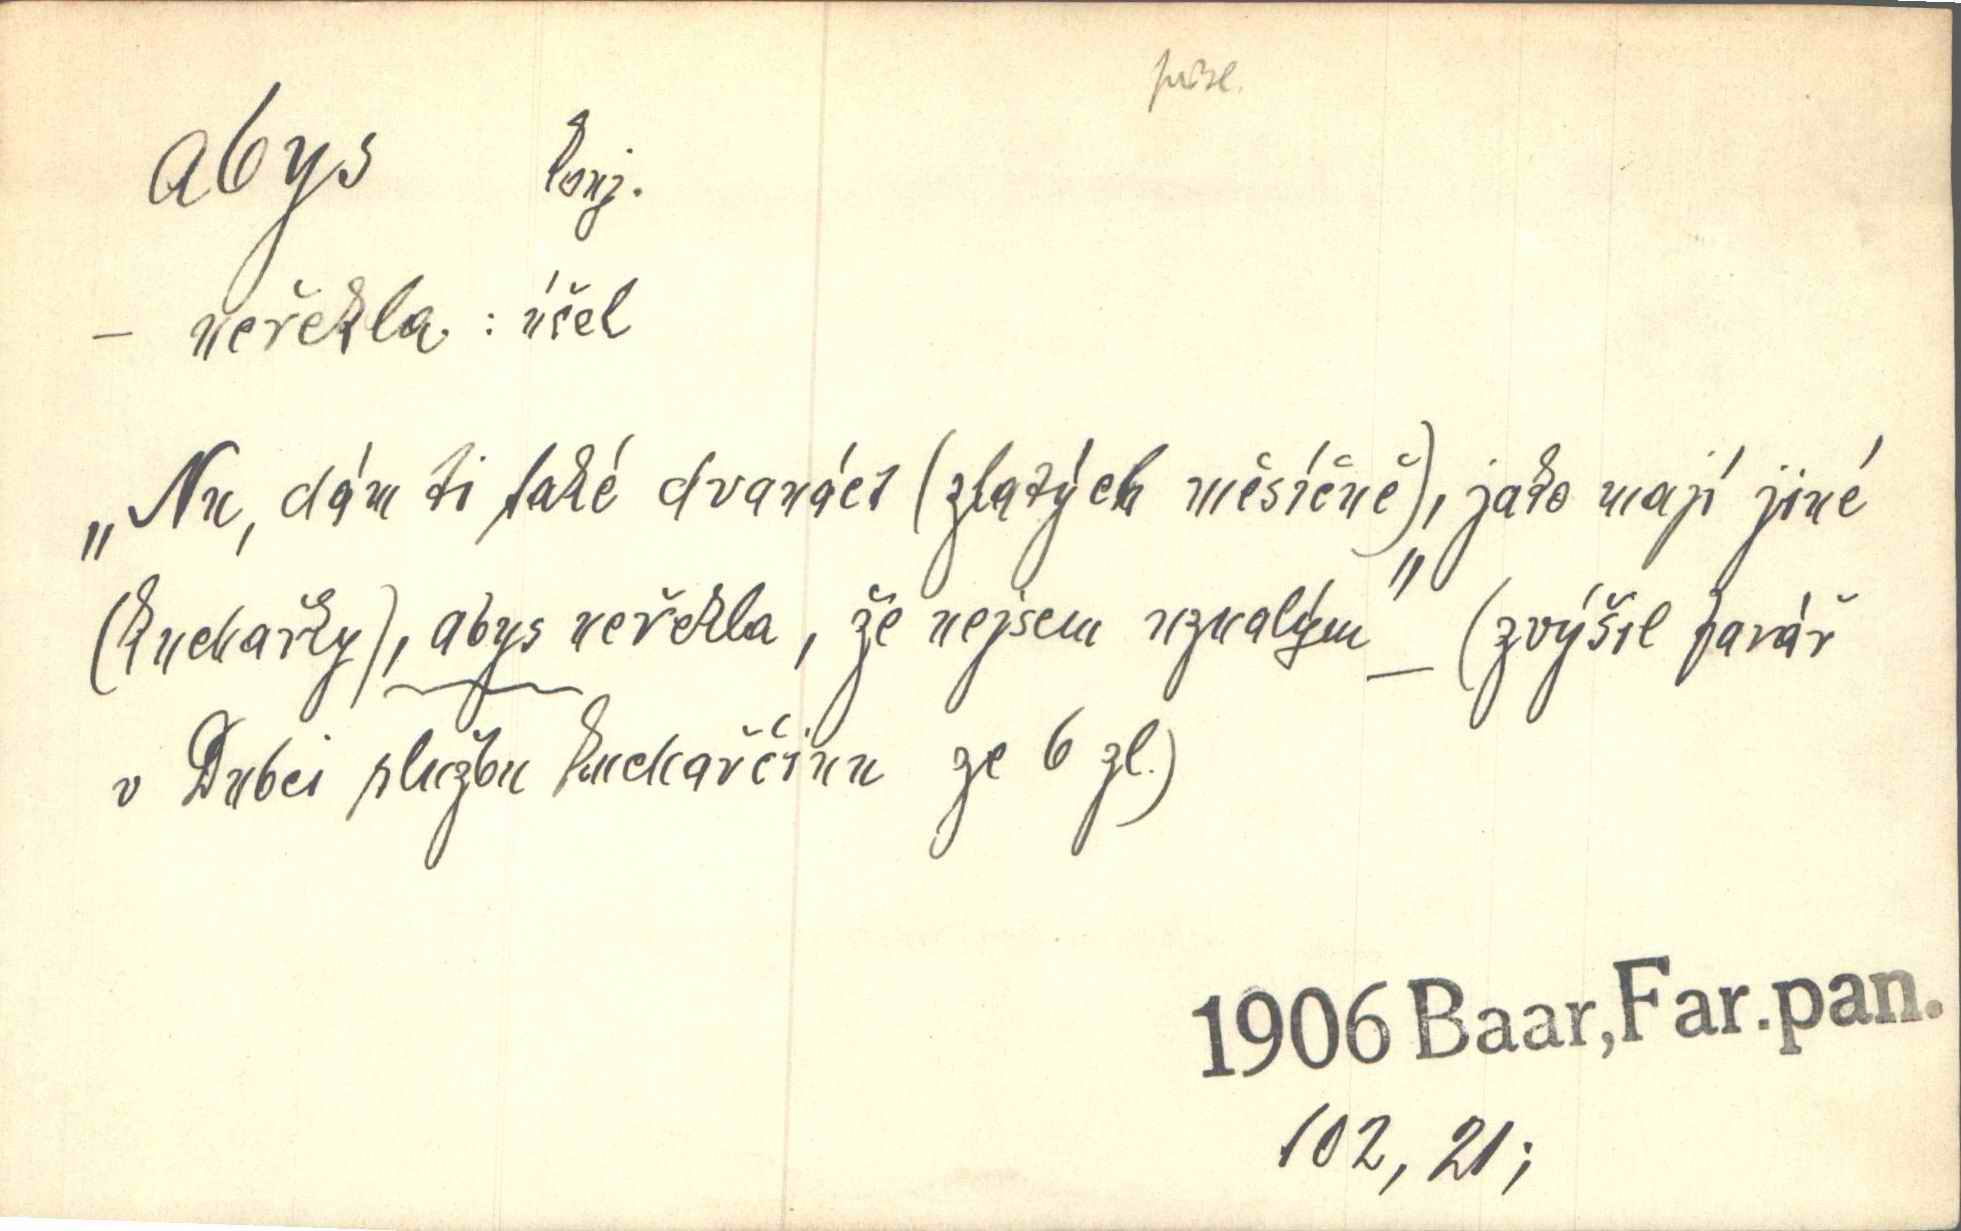 abys konj.
– neřekla : účel
„Nu, dám ti také dvanáct (zlatých měsíčně), jako mají jiné
(kuchařky), abys neřekla, že nejsem uznalým" – (zvýšil farář
v Dubci službu kuchařčinu ze 6 zl.)
1906 Baar, Far. pan.
102, 21;